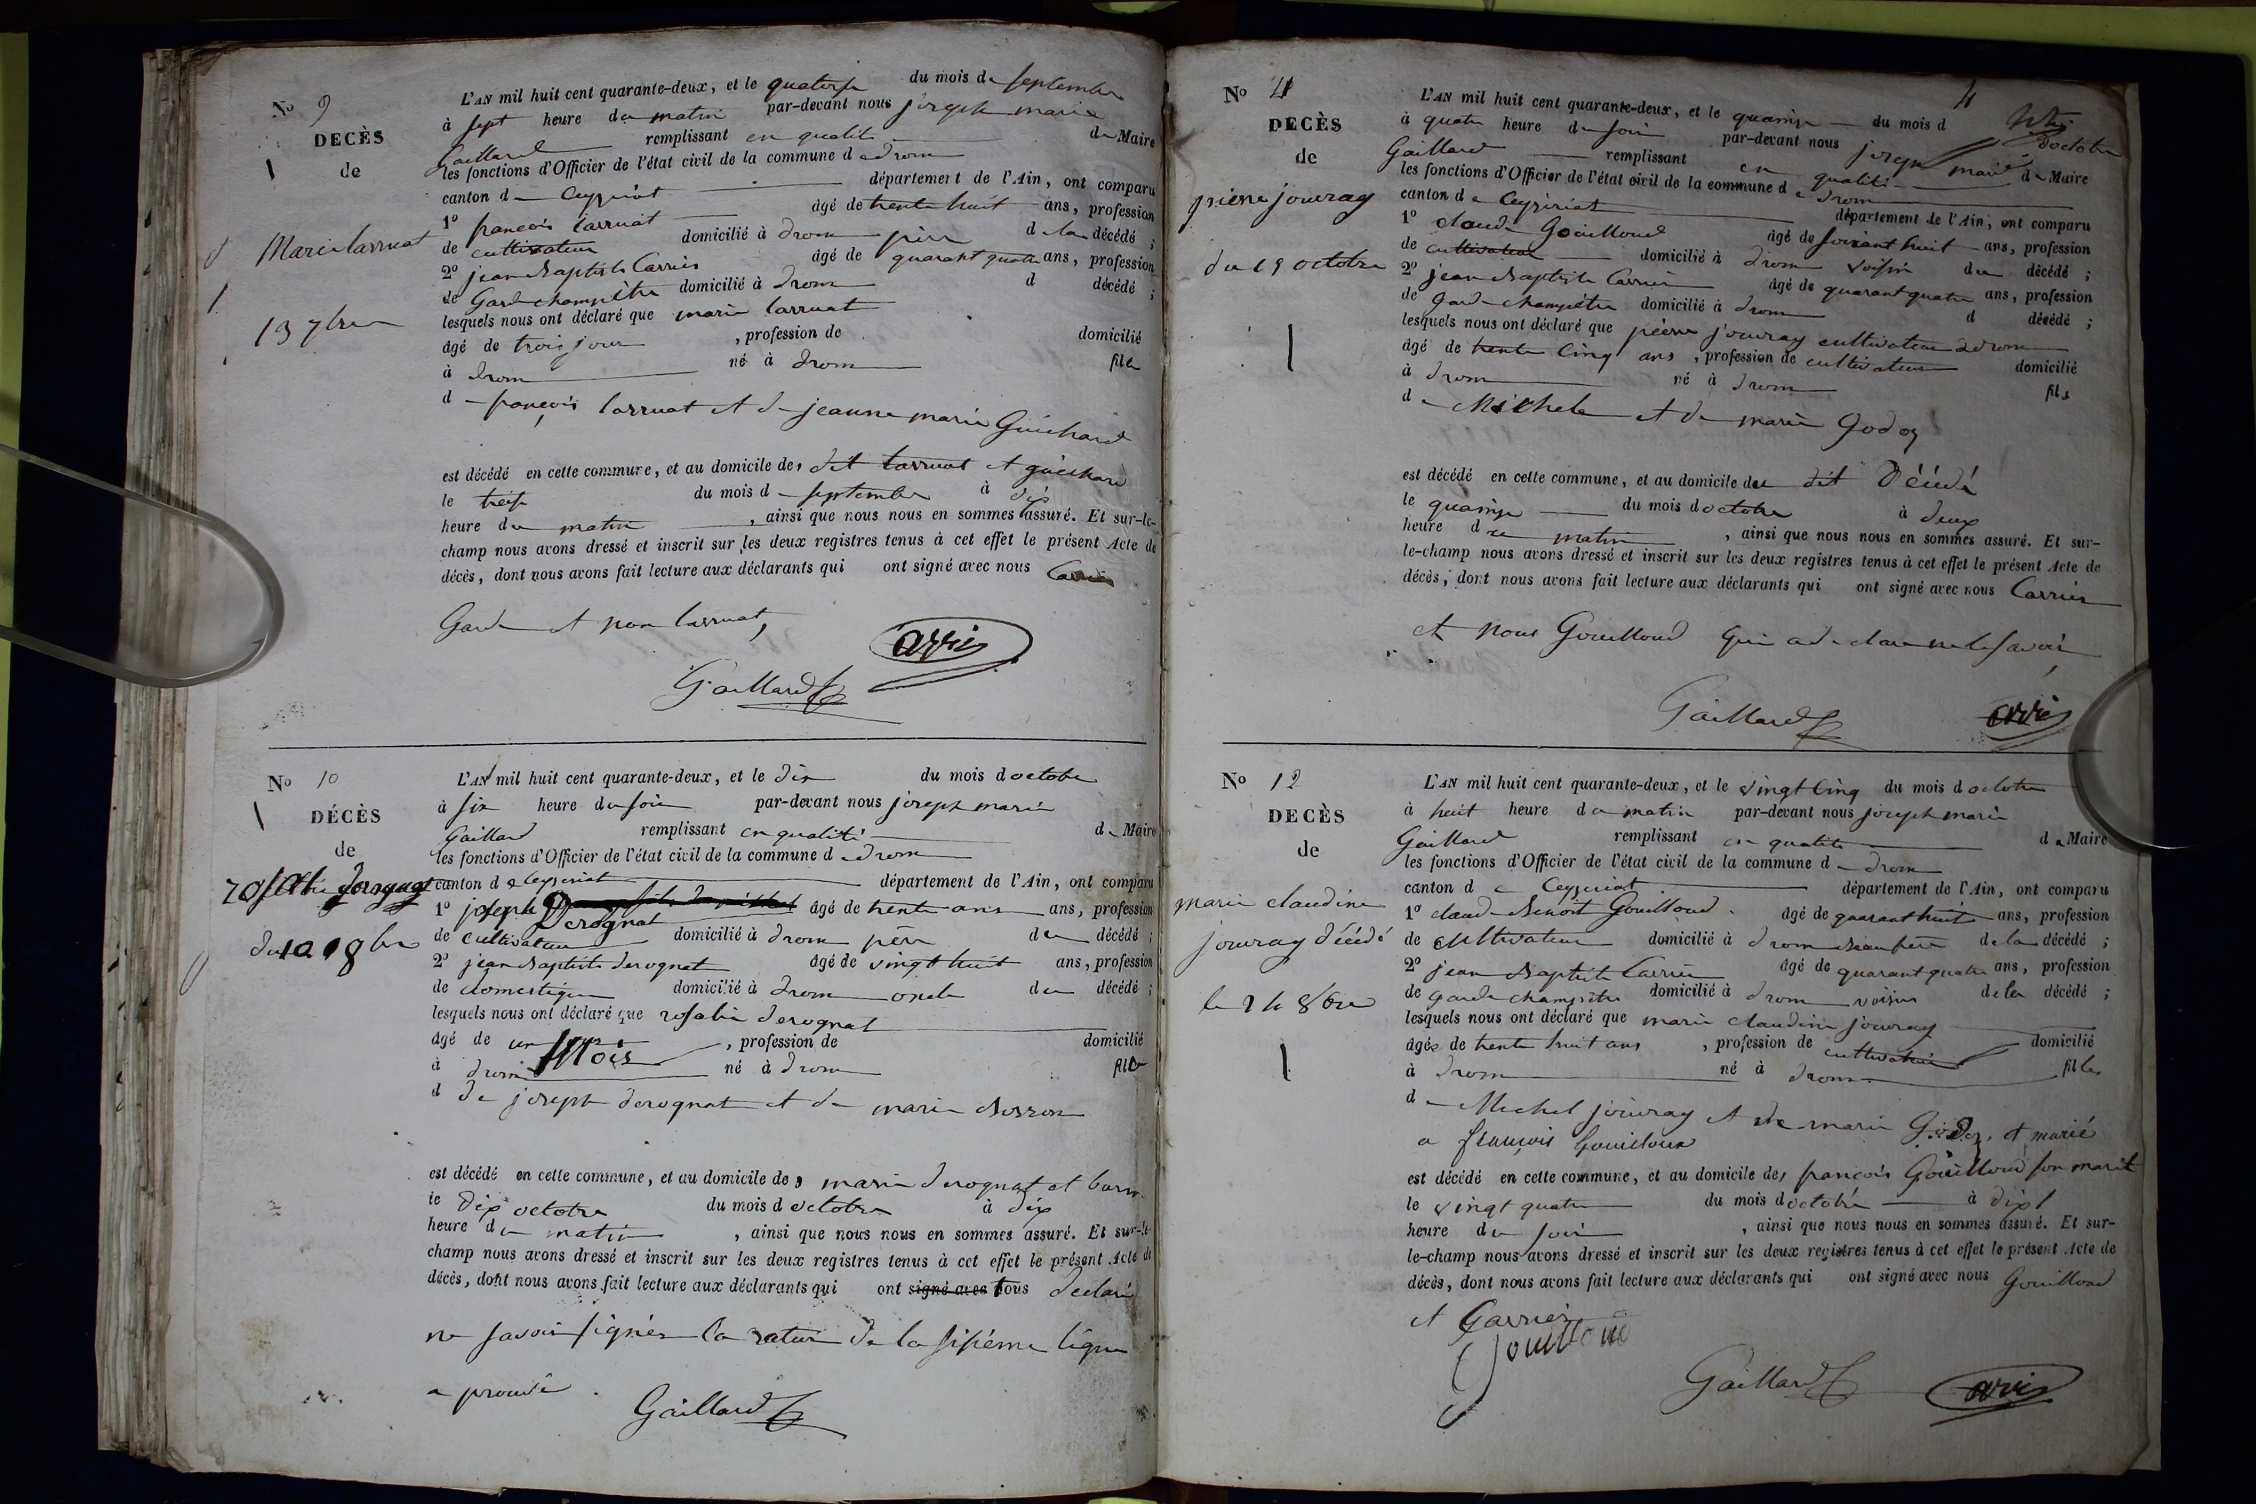 No 9
DECÈS
de
Marie larruat
13 7bre
L'AN mil huit cent quarante-deux, et le quatorse du mois de septembre
à sept heure du matin par-devant nous joseph marie
Gaillard remplissant en qualité de Maire
les fonctions d'Officier de l'état civil de la commune de drom
canton de Ceyzeriat département de l'Ain, ont comparu
1o francois larruat âgé de trente huit ans, profession
de cultivateur domicilié à drom père de la décédé ;
2o jean Baptiste Carrier âgé de quarant quatre ans, profession
de Garde champètre domicilié à drom d décédé ;
lesquels nous ont déclaré que marie larruat
âgé de trois jour , profession de domicilié
à drom né à drom fille
de françois larruat et de jeanne marie Guichard
est décédé en cette commune, et au domicile des dit larruat et guichard
le treise du mois de septembre à dix
heure du matin , ainsi que nous nous en sommes assuré. Et sur-le-
champ nous avons dressé et inscrit sur les deux registres tenus à cet effet le présent Acte de
décès, dont nous avons fait lecture aux déclarants qui ont signé avec nous Carrier
Garde et non larruat,
Gaillard
No 10
DÉCÈS
de
rosalie derognat
du 10 8bre
L'AN mil huit cent quarante-deux, et le dix du mois d octobre
à six heure du soir par-devant nous joseph marie
Gaillard remplissant en qualité de Maire
les fonctions d'Officier de l'état civil de la commune de drom
canton de Ceyzeriat département de l'Ain, ont comparu
1o joseph Derognat âgé de trente ans ans, profession
de cultivateur domicilié à drom père du décédé ;
2o jean Baptiste derognat âgé de vingt huit ans, profession
de domestique domicilié à drom oncle du décédé ;
lesquels nous ont déclaré que rosalie derognat
âgé de un mois , profession de domicilié
à drom né à drom fille
d de joseph derognat et de marie
est décédé en cette commune, et au domicile des marie derognat et
le dix octobre du mois d octobre à dix
heure du matin , ainsi que nous nous en sommes assuré. Et sur-le-
champ nous avons dressé et inscrit sur les deux registres tenus à cet effet le présent Acte de
décès, dont nous avons fait lecture aux déclarants qui ont signé avec tous declaré
ne savoir signer la rature de la sixième ligne
a prouvé
Gaillard
No 11
DECÈS
de
pierre jouvray
du 19 octobre
L'AN mil huit cent quarante-deux, et le quainse du mois d
doctobre
à quatre heure du soir par-devant nous joseph marie
Gaillard remplissant en qualité de Maire
les fonctions d'Officier de l'état civil de la commune de drom
canton de Ceyzeriat département de l'Ain, ont comparu
1o claude Gouilloud âgé de soixant huit ans, profession
de cultivateur domicilié à drom voisin du décédé ;
2o jean Baptiste Carrier âgé de quarant quatre ans, profession
de garde champètre domicilié à drom d décédé ;
lesquels nous ont déclaré que pierre jouvray cultivateur a drom
âgé de trente cinq ans , profession de cultivateur domicilié
à drom né à drom fils
de Michel et de marie Godoz
est décédé en cette commune, et au domicile du dit Décédé
le quainse du mois d octobre à deux
heure du matin , ainsi que nous nous en sommes assuré. Et sur-
le-champ nous avons dressé et inscrit sur les deux registres tenus à cet effet le présent Acte de
décès, dont nous avons fait lecture aux déclarants qui ont signé avec nous Carrier
et nous Gouilloud qui a declare ne le savoir
Gaillard
No 12
DECÈS
de
marie claudine
jouvray décédé
le 24 8bre
L'AN mil huit cent quarante-deux, et le vingt cinq du mois d octobre
à heut heure du matin par-devant nous joseph marie
Gaillard remplissant en qualité de Maire
les fonctions d'Officier de l'état civil de la commune de drom
canton de Ceyzeriat département de l'Ain, ont comparu
1o claude Benoit Gouilloud âgé de quarant huit ans, profession
de cultivateur domicilié à drom beau frère de la décédé ;
2o jean Baptiste Carrier âgé de quarant quatre ans, profession
de garde champètre domicilié à drom voisin de la décédé ;
lesquels nous ont déclaré que marie claudine jouvray
âgée de trente huit ans , profession de cultivatrice domicilié
à drom né à drom fille
de Michel jouvray et de marie Godoz, et marié
a françois Gouilloud
est décédé en cette commune, et au domicile des françois Gouilloud son marit
le vingt quatre du mois d octobre à dix
heure du soir , ainsi que nous nous en sommes assuré. Et sur-
le-champ nous avons dressé et inscrit sur les deux registres tenus à cet effet le présent Acte de
décès, dont nous avons fait lecture aux déclarants qui ont signé avec nous Gouilloud
et Carrier
Gouilloud
Gaillard